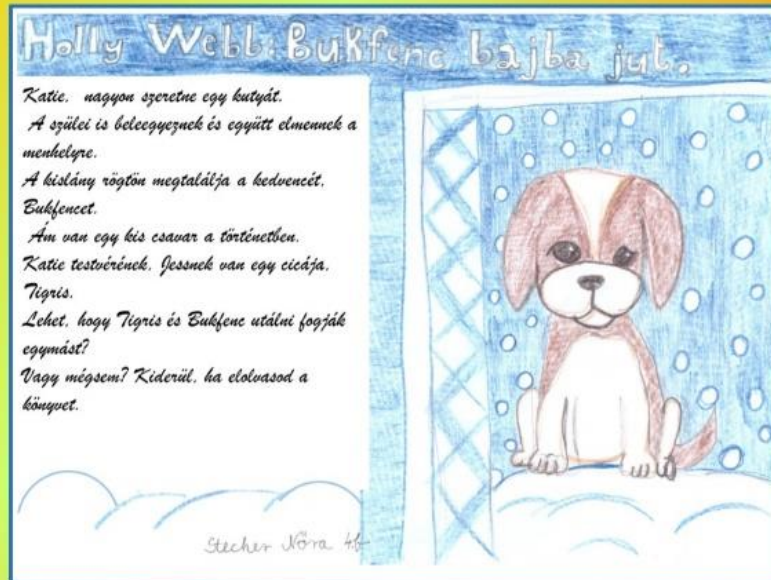 Holly Webb: Bukfenc bajba jut.
Katie, nagyon szeretne egy kutyát.
A szülei is beleegyeznek és együtt elmennek a
menhelyre.
A kislány rögtön megtalálja a kedvencét,
Bukfencet.
Ám van egy kis csavar a történetben.
Katie testvérének, Jessnek van egy cicája,
Tigris.
Lehet, hogy Tigris és Bukfenc utálni fogják
egymást?
Vagy mégsem? Kiderül, ha elolvasod a
könyvet.
Stecher Nóra 4.b